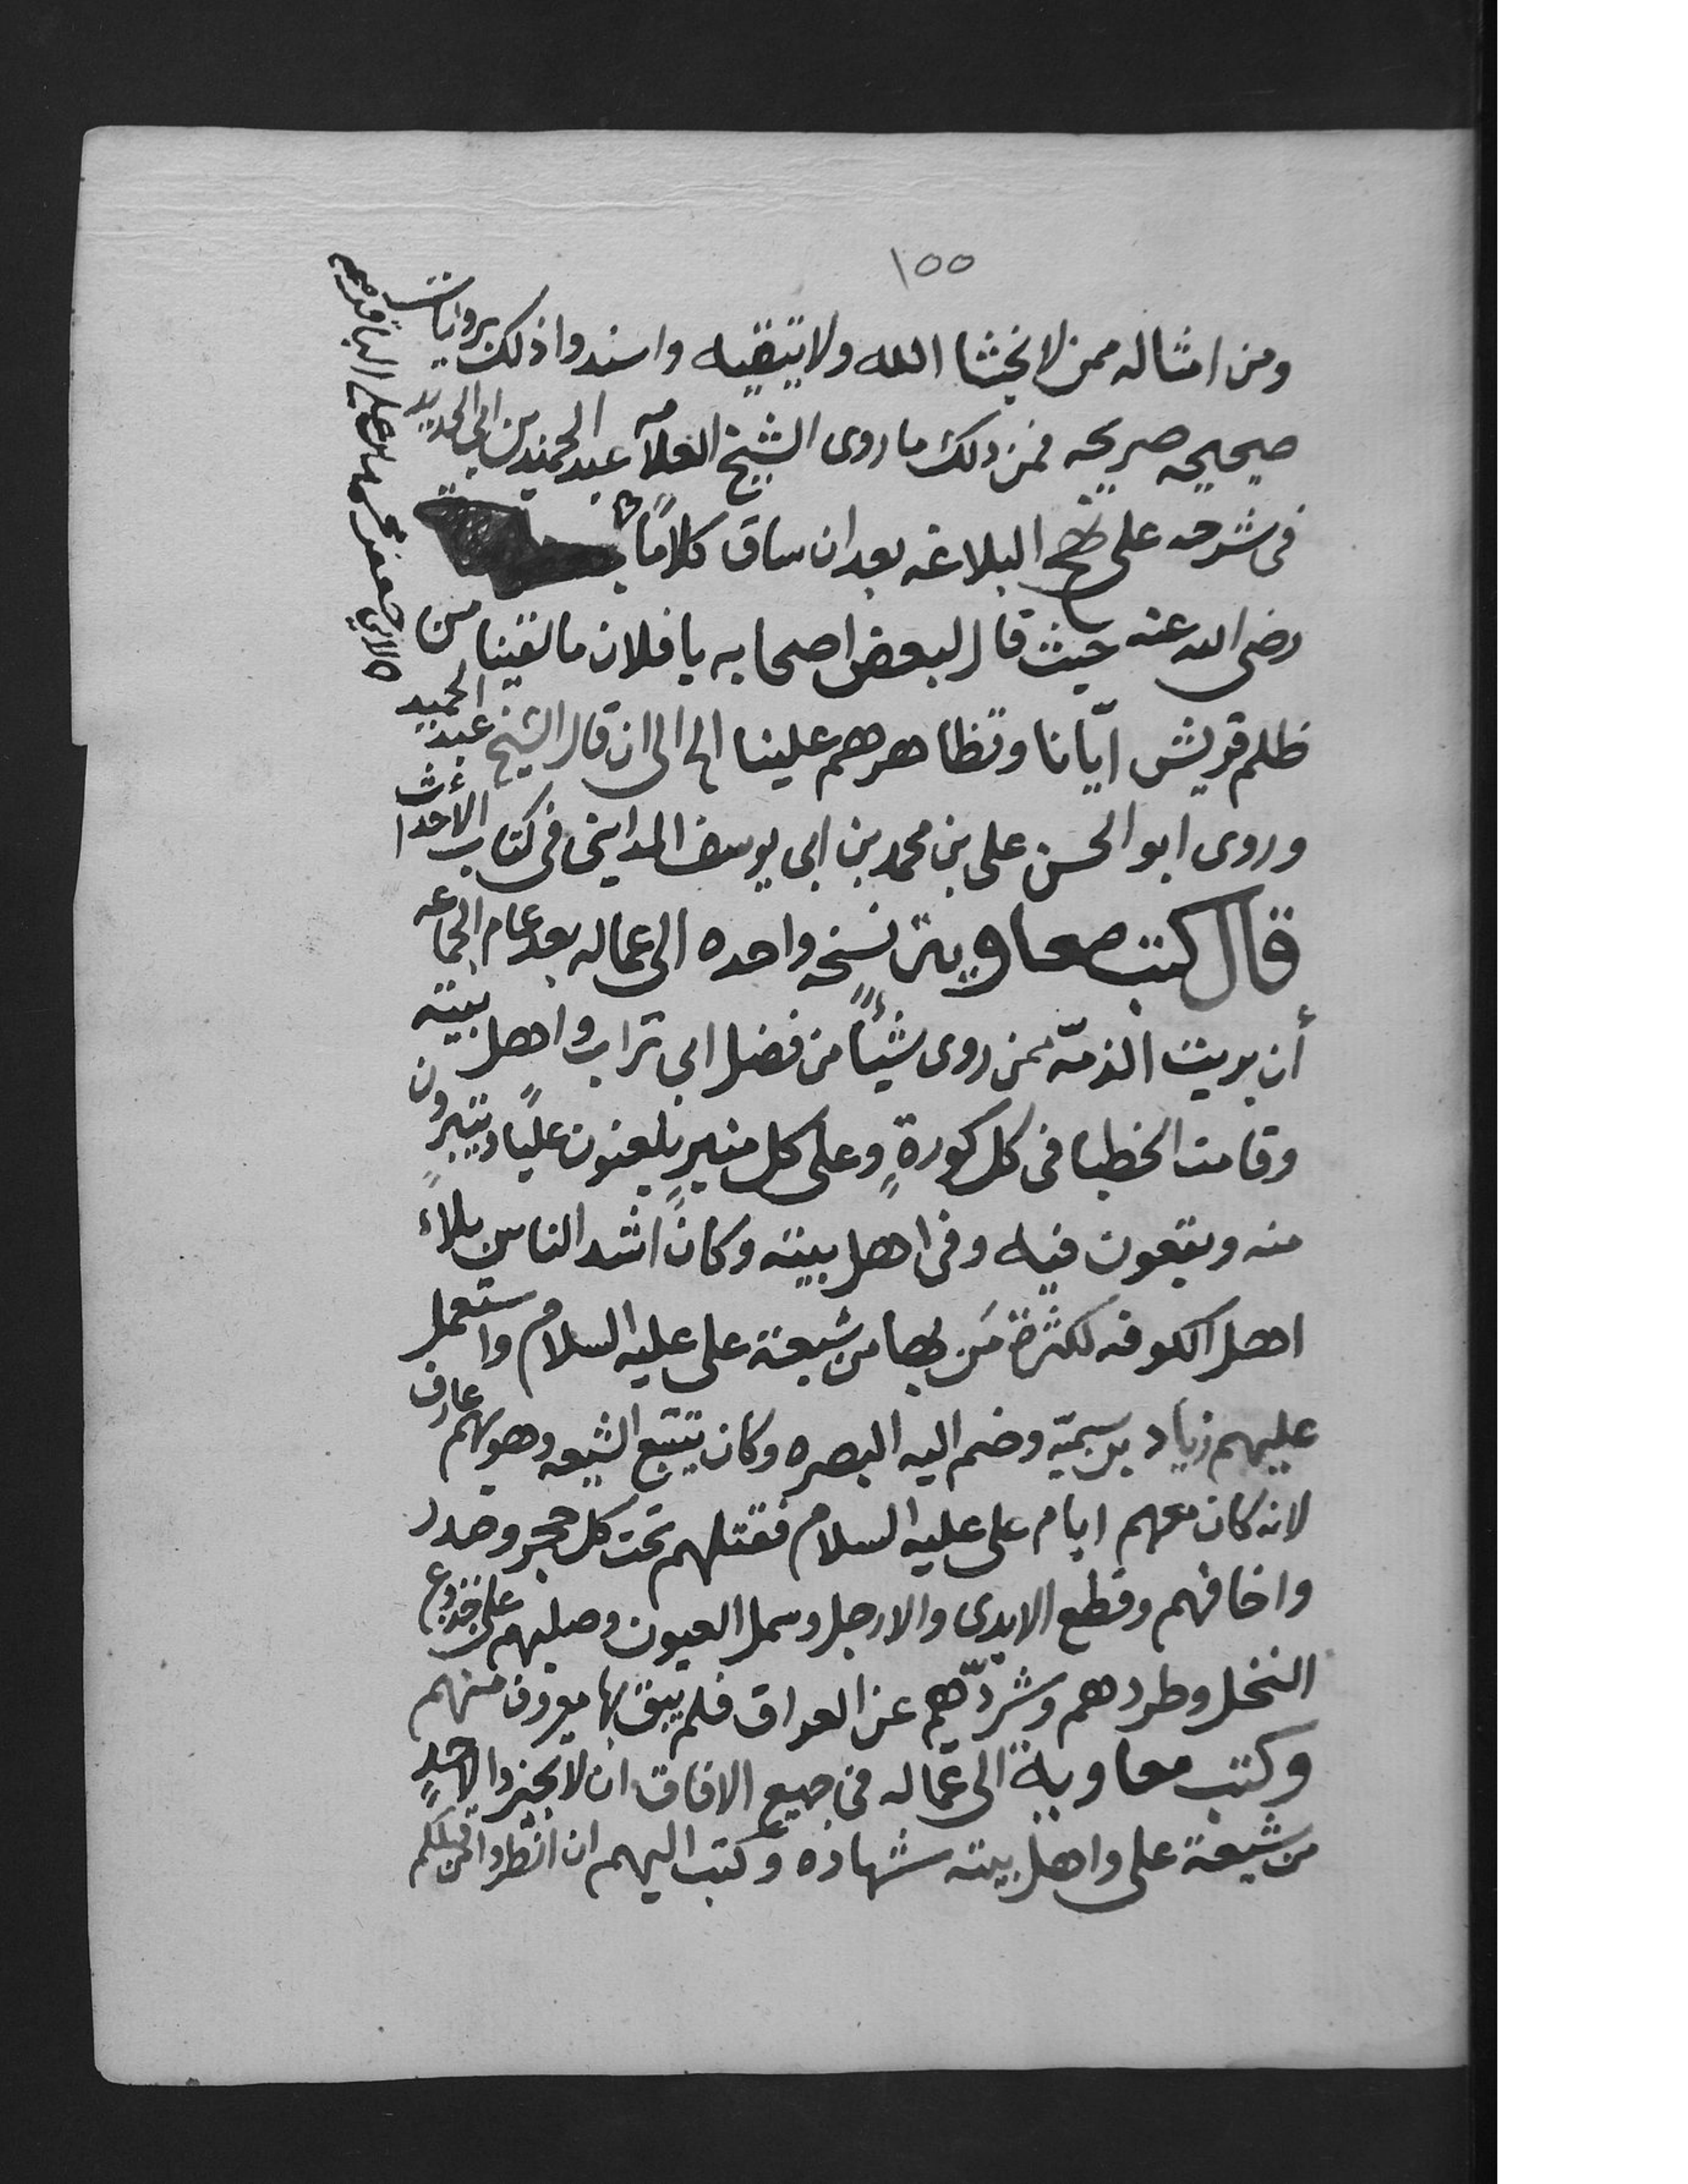 ١٥٥
ومن امثاله ممن لا يخشا الله ولا يتقيه واسندوا ذلك بروايات
صحيحه صريحه فمن ذلك ما روى الشيخ العلامه عبد الحميد بن ابى الحديد
فى شرحه على نهج البلاغه بعد ان ساق كلامًا
لابي جعفر محمد بن على الباقر
رضى الله عنه حيث قال لبعض اصحابه يا فلان ما لقينا من
ظلم قريش ايّانا وتظاهرهم علينا الى ان قال الشيخ عبد الحميد
وروى ابو الحسن على بن محمد بن ابى يوسف المدايني فى كتاب الأحداث
قال كتب معاوية نسخه واحده الى عماله بعد عام الجماعه
أن بريت الذمّه ممن روى شيئًا من فضل ابى تراب واهل بيته
وقامت الخطبا فى كل كورةٍ وعلى كل منبرٍ يلعنون عليًا ويتبرون
منه ويقعون فيه وفى اهل بيته وكان اشد الناس بلاءً
اهل الكوفه لكثرة مَن بها من شيعة على عليه السلام واستعمل
عليهم زياد بن سميّه وضم اليه البصره وكان يتتبع الشيعه وهو بهم عارف
لانه كان معهم ايام على عليه السلام فقتلهم تحت كل حجر ومدر
واخافهم وقطع الايدى والارجل وسمل العيون وصلبهم على جذوع
النخل وطردهم وشردّهم عن العراق فلم يبق بها معروف منهم
وكتب معاوية الى عماله فى جميع الافاق ان لا يجيزوا لاحدٍ
من شيعة على واهل بيته شهاده وكتب اليهم ان انظروا من قبلكم